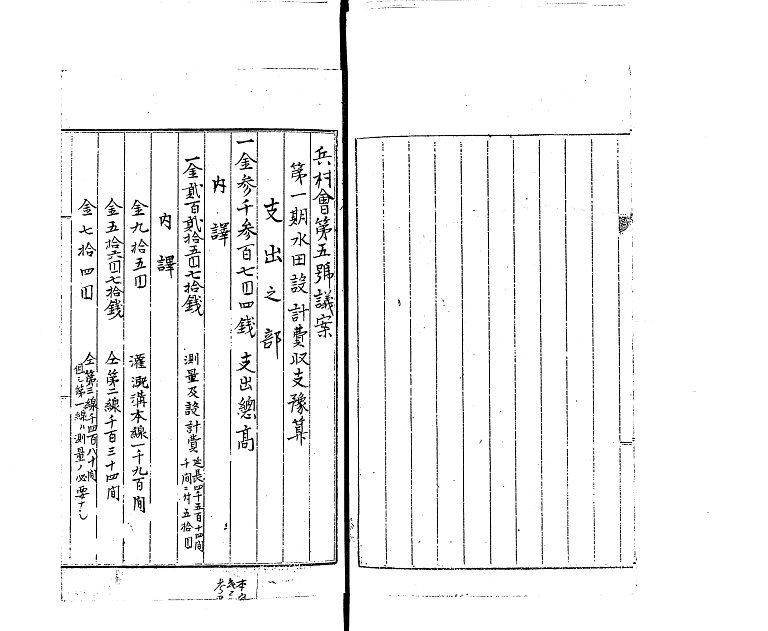 兵村會第五號議案
第一期水田設計費収支豫算
支出之部
一金参千参百七円四銭 支出總高
内譯
一金貳百貳拾五円七拾銭 測量及設計費 延長四千五百十四間 千間ニ付五拾円
内譯
金九拾五円 灌漑溝本線一千九百間
金五拾六円七拾銭 仝第二線千百三十四間
金七拾四円 仝第三線千四百八十間
但シ第一線ハ測量ノ必要ナシ